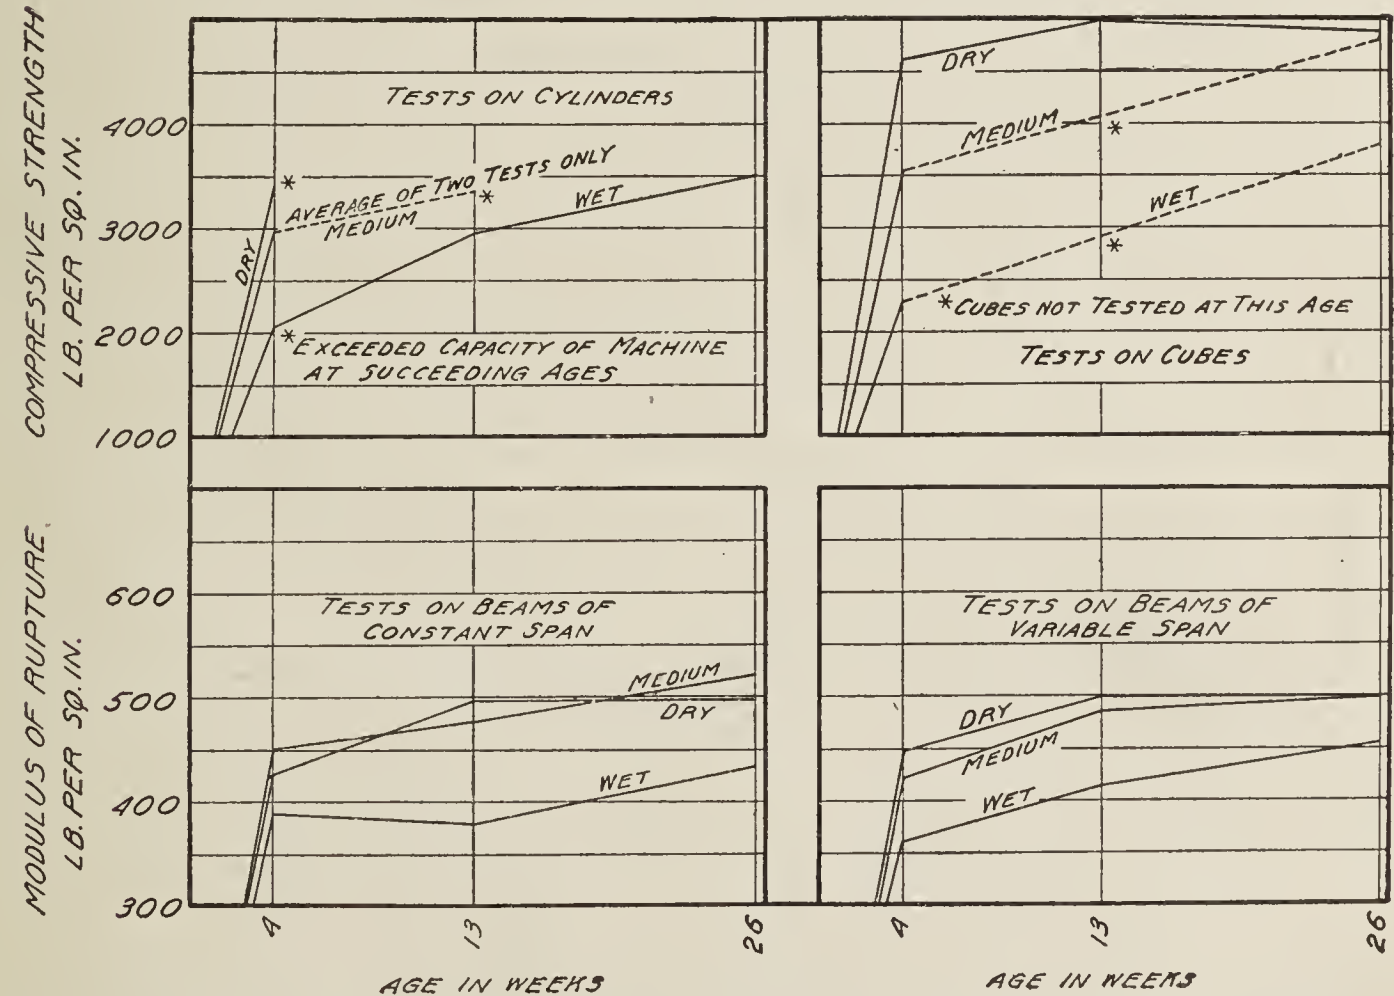 COMPRESSIVE STRENGTH
LB. PER SQ. IN.
4000
3000
2000
1000
TESTS ON CYLINDERS
*
AVERAGE OF TWO TESTS ONLY
*
MEDIUM
WET
DRY
*EXCEEDED CAPACITY OF MACHINE
AT SUCCEEDING AGES
DRY
MEDIUM
*
WET
*
*CUBES NOT TESTED AT THIS AGE
TESTS ON CUBES
MODULUS OF RUPTURE
LB. PER SQ. IN.
600
500
400
300
TESTS ON BEAMS OF
CONSTANT SPAN
MEDIUM
DRY
WET
4
13
26
AGE IN WEEKS
TESTS ON BEAMS OF
VARIABLE SPAN
DRY
MEDIUM
WET
4
13
26
AGE IN WEEKS